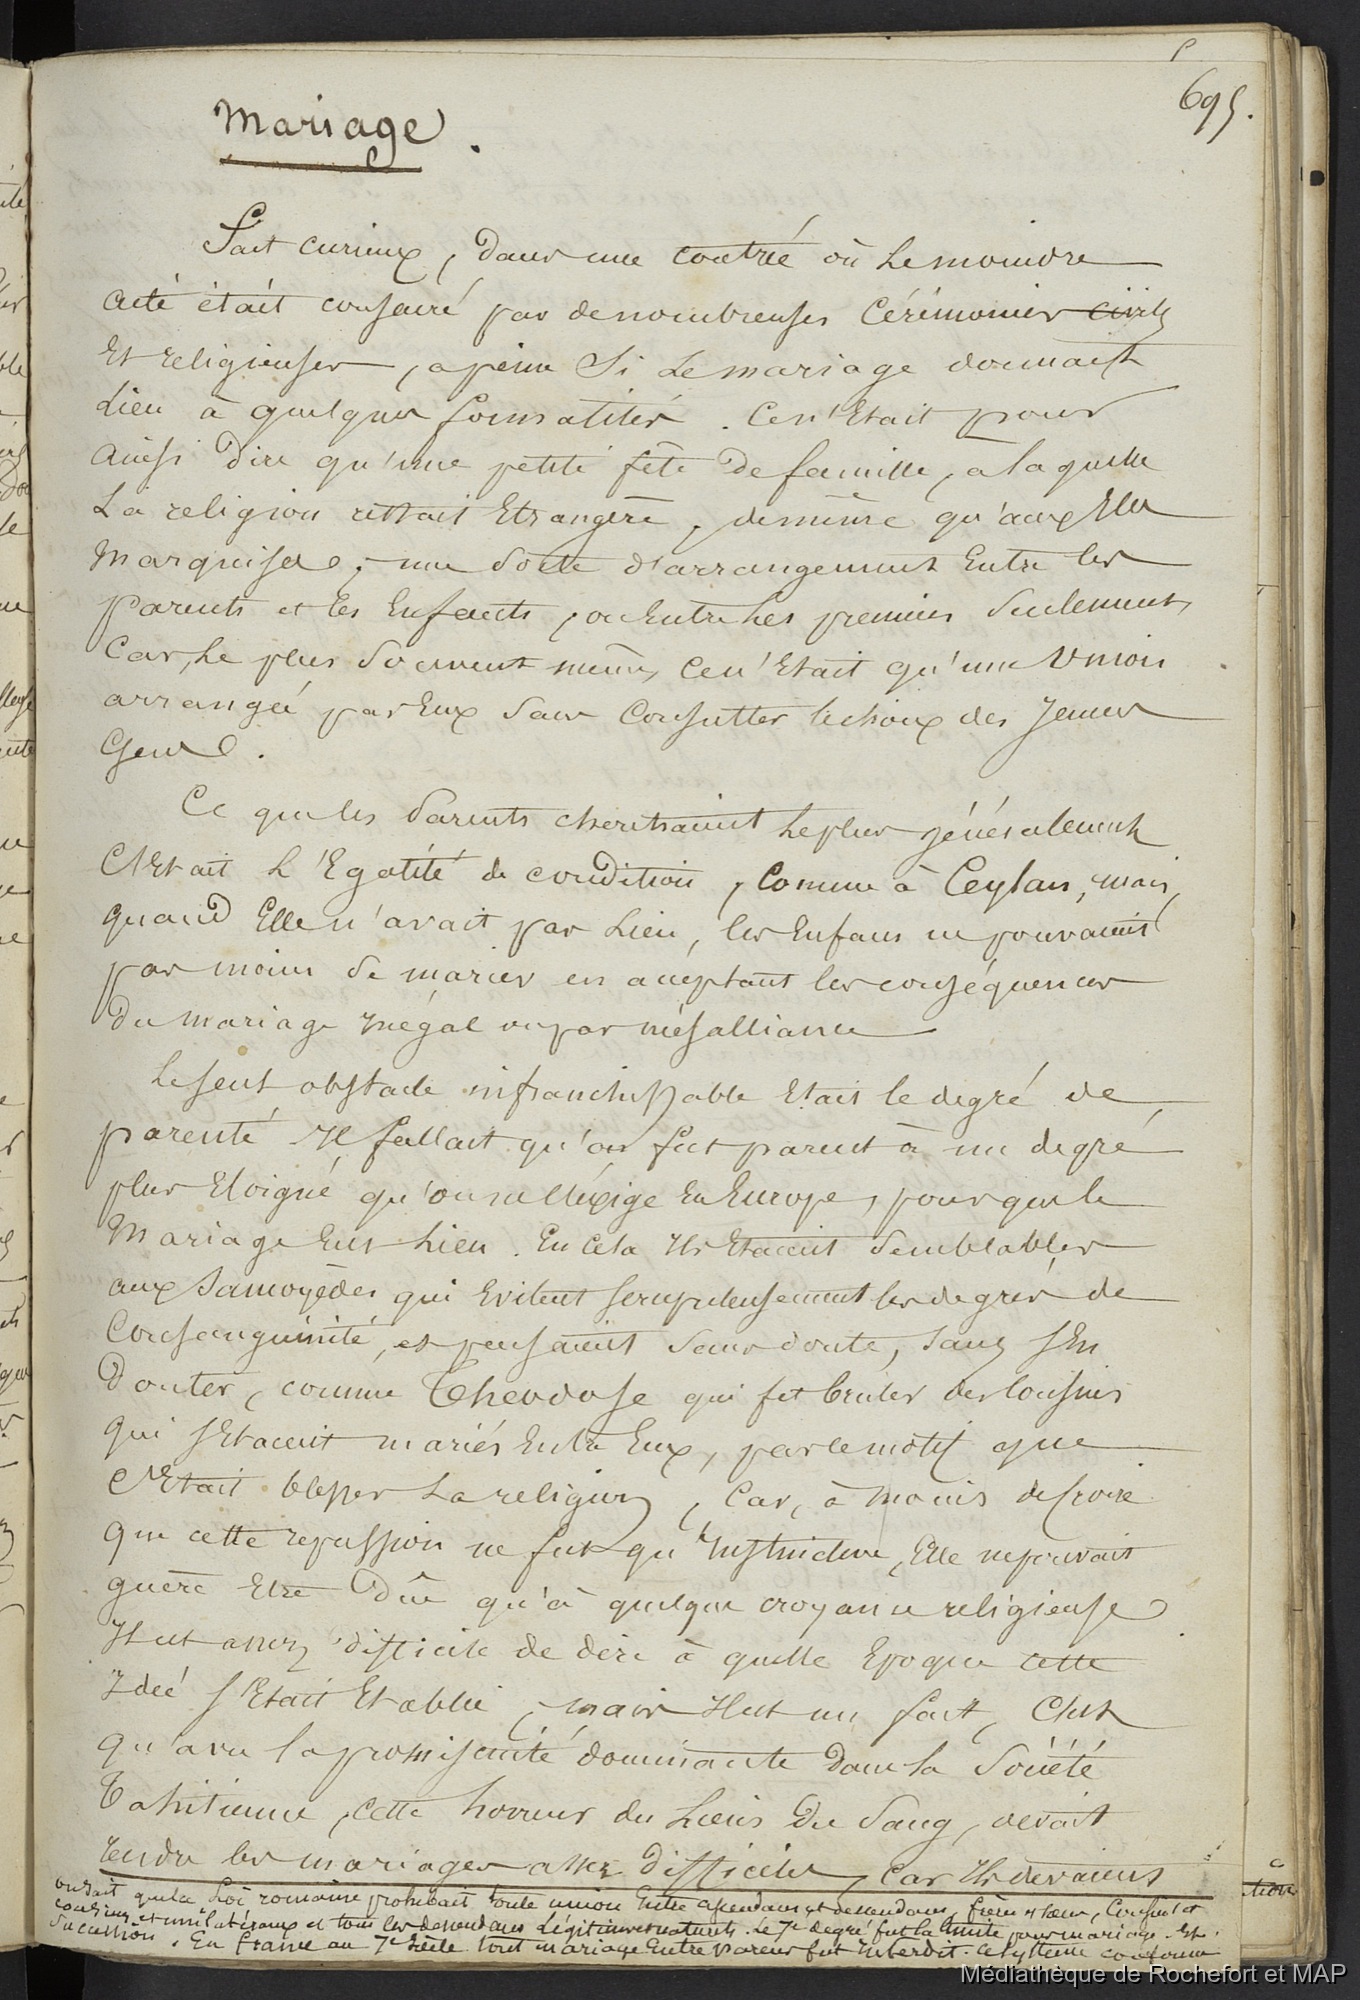 695.
Mariage.
Fait curieux, dans une contrée où le moindre
acte était consacré par de nombreuses cérémonies civiles
et religieuses, a peine si le mariage donnait
lieu à quelques formalités. Ce n'était pour
ainsi dire qu'une petite fête de famille, a laquelle
La religion restait Etrangère, de même qu'aux Iles
Marquises, une sorte d'arrangement Entre les
parents et les Enfants, ou Entre les premiers seulement,
Car, le plus souvent même, ce n'Etait qu'une Union
arrangée par Eux sans consulter le choix des Jeunes
Gens.
Ce que les Parents cherchaient le plus généralement
C'Etait L'Egalité de condition, Comme à Ceylan, mais,
quand Elle n'avait pas Lieu, les Enfans ne pouvaient
pas moins se marier en acceptant les conséquences
Du mariage inégal ou par mésalliance
Le seul obstacle infranchissable Etait le degré de
parenté Il fallait qu'on fut parent à un degré
plus Eloigné qu'on ne l'exige En Europe, pour que le
Mariage Eut Lieu. En Cela Ils Etaient Semblables
aux Samoyèdes qui Evitent scrupuleusement les degrés de
Consanguinité, et pensaient sans doute, sans s'En
Douter, comme Théodose qui fit bruler des Cousins
qui s'Etaient mariés Entre Eux, par le motif que
C'Etait blesser La religion, Car, à moins de croire
que cette repulsion ne fut qu'Instinctive, Elle ne pouvait
guère Etre Dûe qu'à quelque croyance religieuse
Il est assez difficile de dire à quelle Epoque cette
Idée s'Etait Etablie, mais Il est un fait, C'est
qu'avec la promiscuité dominante Dans la Société
Tahitienne, cette horreur des Liens Du Sang, devait
rendre les mariages assez Difficiles, Car Ils devaient
on sait que la Loi romaine prohibait toute union Entre ascendans et descendans, frères et sœurs, Cousins et
cousines et collatéraux et tous les descendans Légitimes et naturels. Le 7e degré fut la limite pour mariage et
succession. En France au 7e Siècle tout mariage Entre parens fut Interdit. Ce systeme conforme
Médiathèque de Rochefort et MAP